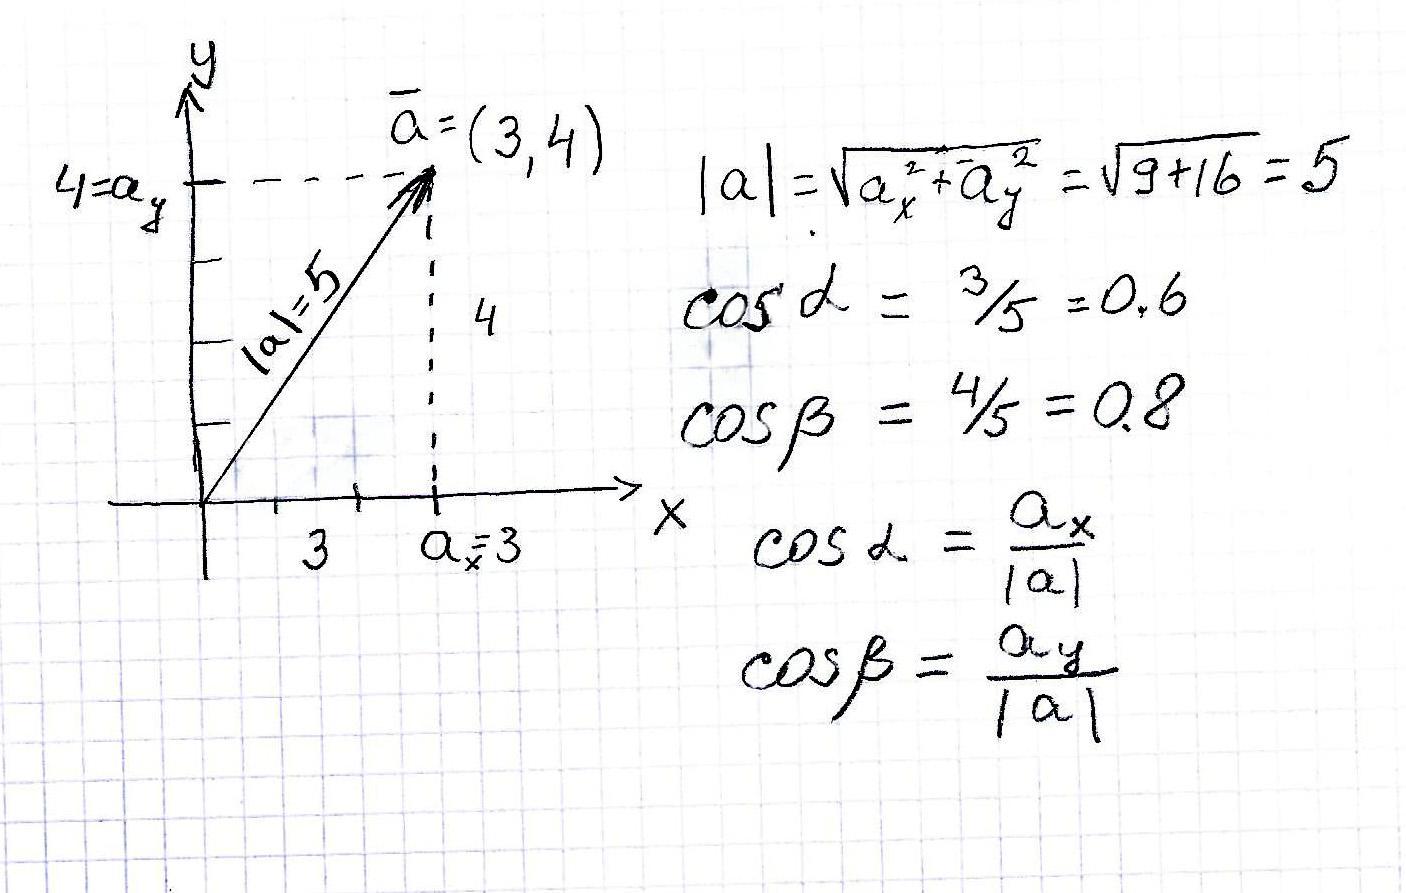 y
a̅ = (3, 4)
4 = a_y
|a| = 5
4
3
a_x = 3
x
|a| = √(a_x² + a_y²) = √(9+16) = 5
cos α = 3/5 = 0.6
cos β = 4/5 = 0.8
cos α = a_x / |a|
cos β = a_y / |a|